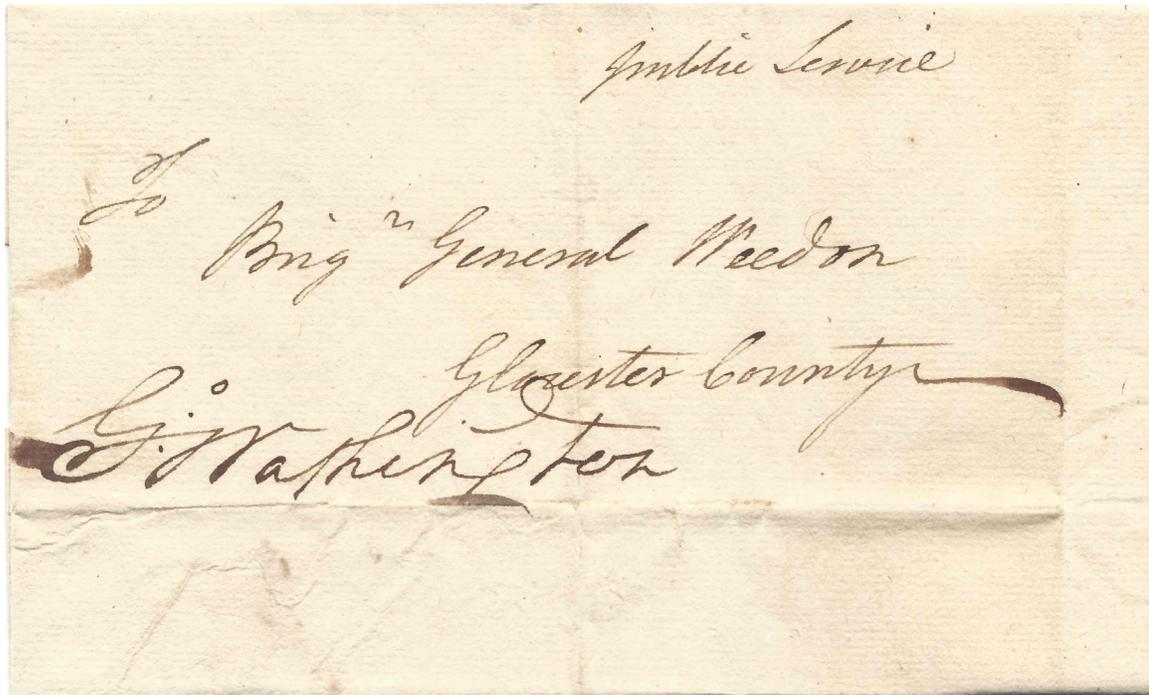 Public Service
To
Brigʳ General Weedon
Gloucester County
Gº: Washington